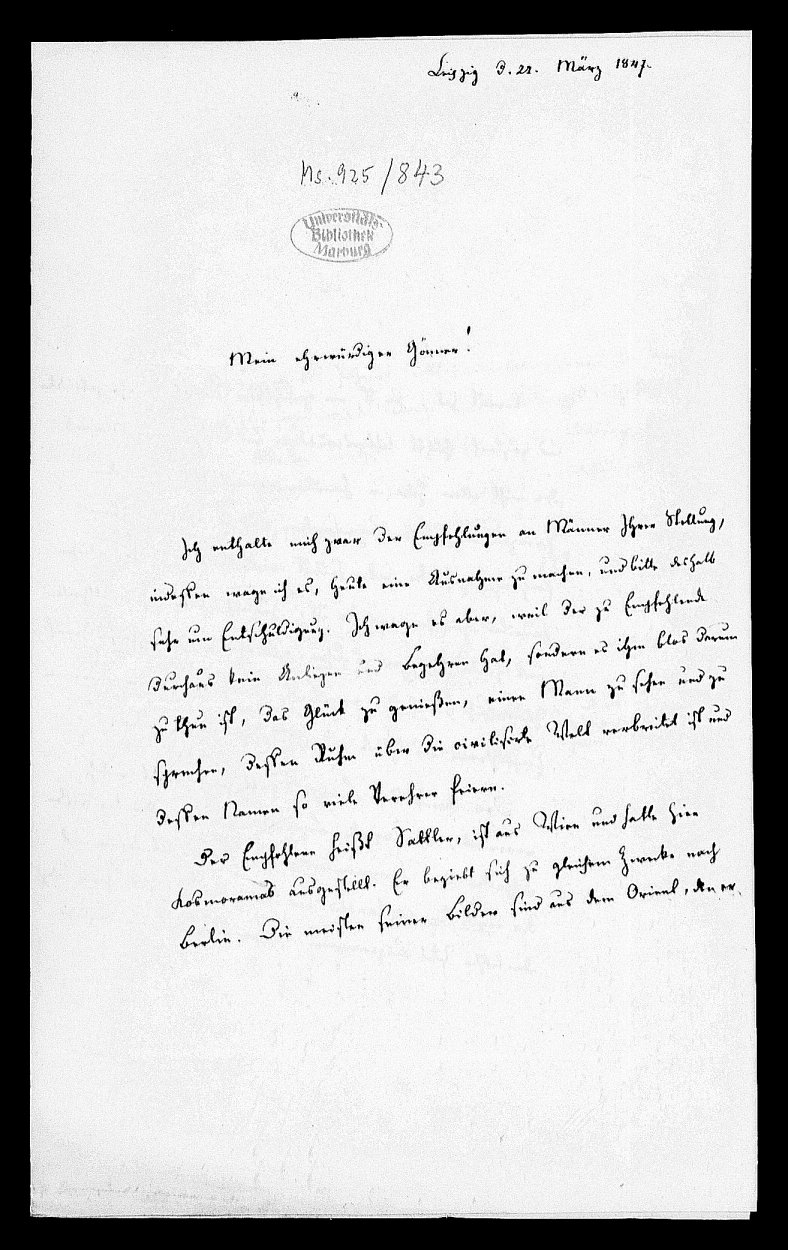 Leipzig d. 22. März 1847.
Ms. 925/843
Universitäts-
Bibliothek
Marburg
Mein ehrwürdiger Gönner!
Ich enthalte mich zwar der Empfehlungen an Männer Ihrer Stellung,
indessen wage ich es, heute eine Ausnahme zu machen, und bitte deshalb
sehr um Entschuldigung. Ich wage es aber, weil der zu Empfehlende
durchaus kein Anliegen und Begehren hat, sondern es ihm blos darum
zu thun ist, das Glück zu genießen, einen Mann zu sehen und zu
sprechen, dessen Ruhm über die civilisirte Welt verbreitet ist und
dessen Namen so viele Verehrer feiern.
Der Empfohlene heißt Sattler, ist aus Wien und hatte hier
Kosmoramas ausgestellt. Er begiebt sich zu gleichem Zwecke nach
Berlin. Die meisten seiner Bilder sind aus dem Orient, den er